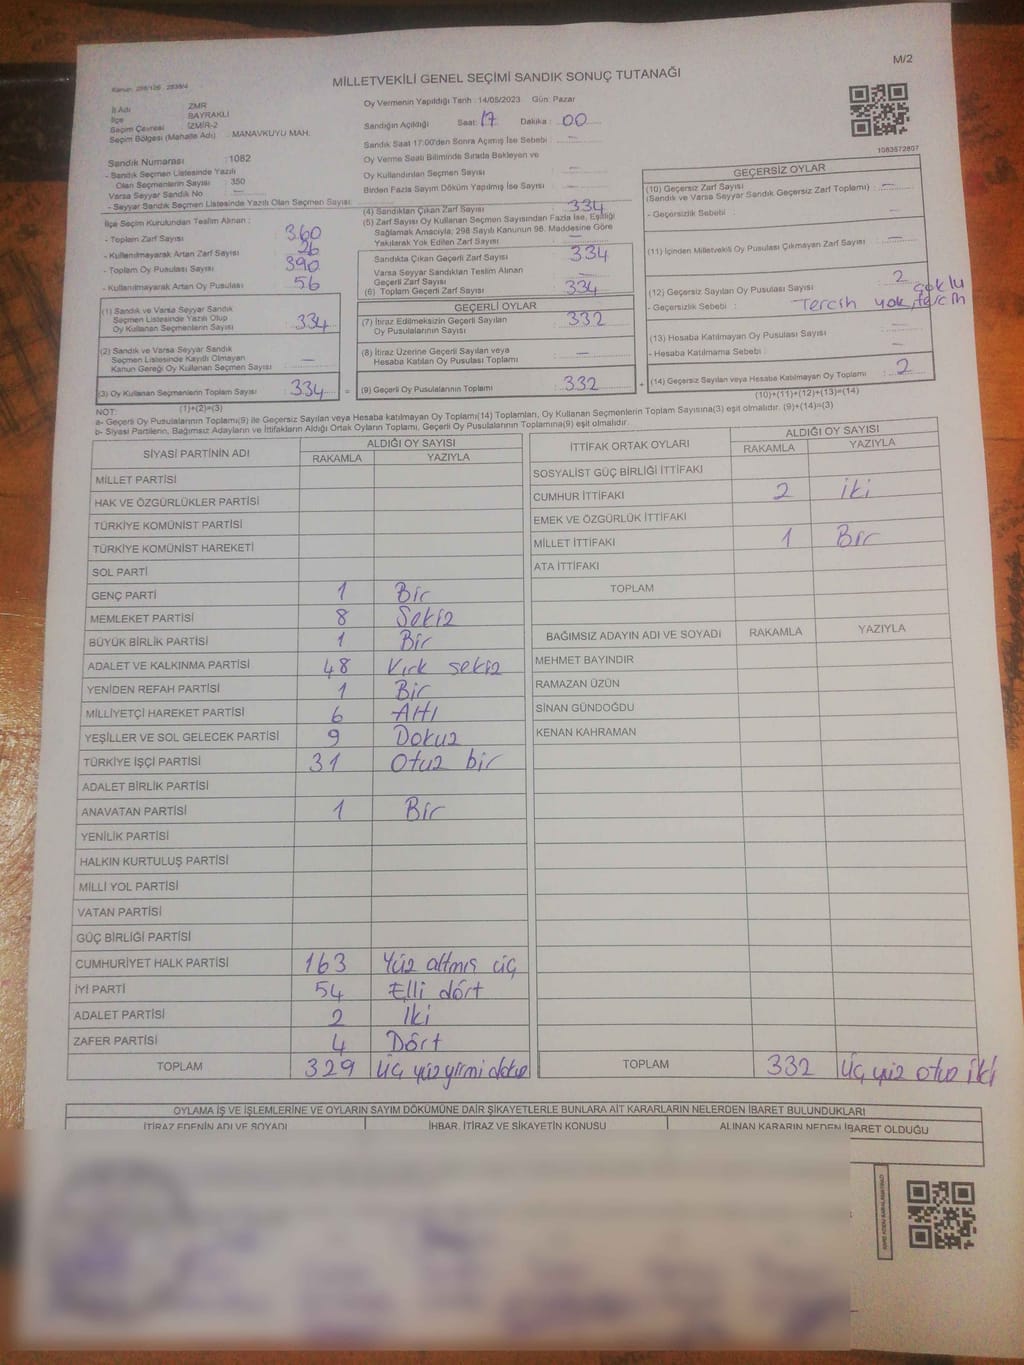 M/2
MİLLETVEKİLİ GENEL SEÇİMİ SANDIK SONUÇ TUTANAĞI
İl Adı : ZMR
İlçe : BAYRAKLI
Seçim Çevresi : İZMİR-2
Seçim Bölgesi (Mahalle Adı) : MANAVKUYU MAH.
Oy Vermenin Yapıldığı Tarih : 14/05/2023 Gün: Pazar
Sandığın Açıldığı Saat: 17 Dakika : 00
Sandık Saat 17:00'den Sonra Açılmış İse Sebebi :
Oy Verme Saati Bitiminde Sırada Bekleyen ve
Oy Kullandırılan Seçmen Sayısı :
Birden Fazla Sayım Döküm Yapılmış İse Sayısı :
1083572807
Sandık Numarası : 1082
- Sandık Seçmen Listesinde Yazılı
Olan Seçmenlerin Sayısı : 350
Varsa Seyyar Sandık No :
- Seyyar Sandık Seçmen Listesinde Yazılı Olan Seçmen Sayısı:
İlçe Seçim Kurulundan Teslim Alınan :
- Toplam Zarf Sayısı : 360
- Kullanılmayarak Artan Zarf Sayısı : 26
- Toplam Oy Pusulası Sayısı : 390
- Kullanılmayarak Artan Oy Pusulası : 56
(1) Sandık ve Varsa Seyyar Sandık
Seçmen Listesinde Yazılı Olup
Oy Kullanan Seçmenlerin Sayısı : 334
(2) Sandık ve Varsa Seyyar Sandık
Seçmen Listesinde Kayıtlı Olmayan
Kanun Gereği Oy Kullanan Seçmen Sayısı : —
(3) Oy Kullanan Seçmenlerin Toplam Sayısı : 334 =
(1)+(2)=(3)
(4) Sandıktan Çıkan Zarf Sayısı : 334
(5) Zarf Sayısı Oy Kullanan Seçmen Sayısından Fazla İse, Eşitliği
Sağlamak Amacıyla; 298 Sayılı Kanunun 98. Maddesine Göre
Yakılarak Yok Edilen Zarf Sayısı : —
Sandıkta Çıkan Geçerli Zarf Sayısı : 334
Varsa Seyyar Sandıktan Teslim Alınan
Geçerli Zarf Sayısı : —
(6) Toplam Geçerli Zarf Sayısı : 334
GEÇERLİ OYLAR
(7) İtiraz Edilmeksizin Geçerli Sayılan
Oy Pusulalarının Sayısı : 332
(8) İtiraz Üzerine Geçerli Sayılan veya
Hesaba Katılan Oy Pusulası Toplamı : —
(9) Geçerli Oy Pusulalarının Toplamı : 332 +
GEÇERSİZ OYLAR
(10) Geçersiz Zarf Sayısı : —
(Sandık ve Varsa Seyyar Sandık Geçersiz Zarf Toplamı)
- Geçersizlik Sebebi : —
(11) İçinden Milletvekili Oy Pusulası Çıkmayan Zarf Sayısı : —
(12) Geçersiz Sayılan Oy Pusulası Sayısı : 2
- Geçersizlik Sebebi : Tercih yok, çoklu tercih
(13) Hesaba Katılmayan Oy Pusulası Sayısı : —
- Hesaba Katılmama Sebebi : —
(14) Geçersiz Sayılan veya Hesaba Katılmayan Oy Toplamı : 2
(10)+(11)+(12)+(13)=(14)
NOT:
a- Geçerli Oy Pusulalarının Toplamı(9) ile Geçersiz Sayılan veya Hesaba katılmayan Oy Toplamı(14) Toplamları, Oy Kullanan Seçmenlerin Toplam Sayısına(3) eşit olmalıdır. (9)+(14)=(3)
b- Siyasi Partilerin, Bağımsız Adayların ve İttifakların Aldığı Ortak Oyların Toplamı, Geçerli Oy Pusulalarının Toplamına(9) eşit olmalıdır.
SİYASİ PARTİNİN ADI ALDIĞI OY SAYISI
RAKAMLA YAZIYLA
MİLLET PARTİSİ
HAK VE ÖZGÜRLÜKLER PARTİSİ
TÜRKİYE KOMÜNİST PARTİSİ
TÜRKİYE KOMÜNİST HAREKETİ
SOL PARTİ
GENÇ PARTİ 1 Bir
MEMLEKET PARTİSİ 8 Sekiz
BÜYÜK BİRLİK PARTİSİ 1 Bir
ADALET VE KALKINMA PARTİSİ 48 Kırk sekiz
YENİDEN REFAH PARTİSİ 1 Bir
MİLLİYETÇİ HAREKET PARTİSİ 6 Altı
YEŞİLLER VE SOL GELECEK PARTİSİ 9 Dokuz
TÜRKİYE İŞÇİ PARTİSİ 31 Otuz bir
ADALET BİRLİK PARTİSİ
ANAVATAN PARTİSİ 1 Bir
YENİLİK PARTİSİ
HALKIN KURTULUŞ PARTİSİ
MİLLİ YOL PARTİSİ
VATAN PARTİSİ
GÜÇ BİRLİĞİ PARTİSİ
CUMHURİYET HALK PARTİSİ 163 Yüz altmış üç
İYİ PARTİ 54 Elli dört
ADALET PARTİSİ 2 İki
ZAFER PARTİSİ 4 Dört
TOPLAM 329 Üç yüz yirmi dokuz
İTTİFAK ORTAK OYLARI ALDIĞI OY SAYISI
RAKAMLA YAZIYLA
SOSYALİST GÜÇ BİRLİĞİ İTTİFAKI
CUMHUR İTTİFAKI 2 İki
EMEK VE ÖZGÜRLÜK İTTİFAKI
MİLLET İTTİFAKI 1 Bir
ATA İTTİFAKI
TOPLAM
BAĞIMSIZ ADAYIN ADI VE SOYADI RAKAMLA YAZIYLA
MEHMET BAYINDIR
RAMAZAN ÜZÜN
SİNAN GÜNDOĞDU
KENAN KAHRAMAN
TOPLAM 332 Üç yüz otuz iki
OYLAMA İŞ VE İŞLEMLERİNE VE OYLARIN SAYIM DÖKÜMÜNE DAİR ŞİKAYETLERLE BUNLARA AİT KARARLARIN NELERDEN İBARET BULUNDUKLARI
İTİRAZ EDENİN ADI VE SOYADI İHBAR, İTİRAZ VE ŞİKAYETİN KONUSU ALINAN KARARIN NEDEN İBARET OLDUĞU